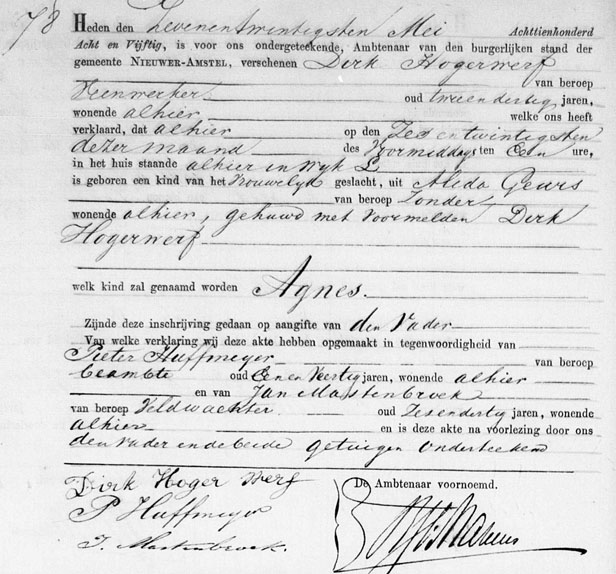 78
Heden den Zevenentwintigsten Mei Achttienhonderd
Acht en Vijftig, is voor ons ondergeteekende, Ambtenaar van den burgerlijken stand der
gemeente NIEUWER-AMSTEL, verschenen Dirk Hogerwerf
van beroep
Veenwerker oud tweendertig jaren,
wonende alhier welke ons heeft
verklaard, dat alhier op den Zesentwintigsten
dezer maand des Voormiddags ten Een ure,
in het huis staande alhier in Wyk L
is geboren een kind van het Vrouwelyk geslacht, uit Alida Geurs
van beroep Zonder
wonende alhier, gehuwd met voormelden Dirk
Hogerwerf
welk kind zal genaamd worden Agnes.
Zijnde deze inschrijving gedaan op aangifte van den Vader
Van welke verklaring wij deze akte hebben opgemaakt in tegenwoordigheid van
Pieter Huffmeyer van beroep
beambte oud Eenen Veertig jaren, wonende alhier
en van Jan Mastenbroek
van beroep Veldwachter oud Zesendertig jaren, wonende
alhier en is deze akte na voorlezing door ons
den Vader en de beide getuigen onderteekend
Dirk Hoger Werf
De Ambtenaar voornoemd.
P Huffmeyer
J. Mastenbroek.